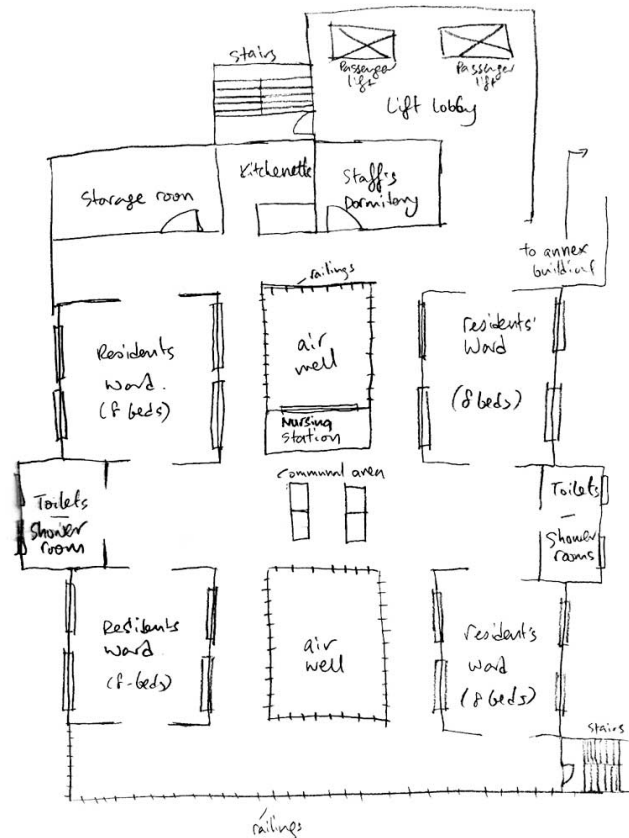 Stairs
Passenger
lift
Passenger
lift
Lift lobby
Storage room
Kitchenette
Staff's
Dormitory
to annex
building
railings
Residents
Ward.
(8 beds)
air
well
residents'
Ward
(8 beds)
Nursing
Station
Communal area
Toilets
—
Shower
room
Toilets
—
Shower
rooms
Residents
Ward
(8-beds)
air
well
resident's
Ward
(8 beds)
Stairs
railings